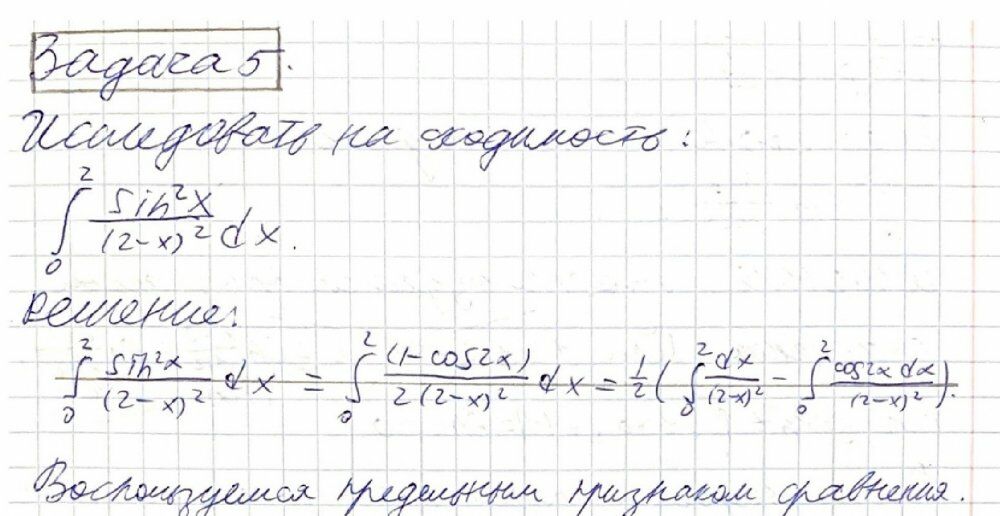 Задача 5.
Исследовать на сходимость:
∫₀² sin²x/(2-x)² dx.
Решение:
∫₀² sin²x/(2-x)² dx = ∫₀² (1-cos2x)/2(2-x)² dx = 1/2 (∫₀² dx/(2-x)² - ∫₀² cos2x dx/(2-x)²).
Воспользуемся предельным признаком сравнения.